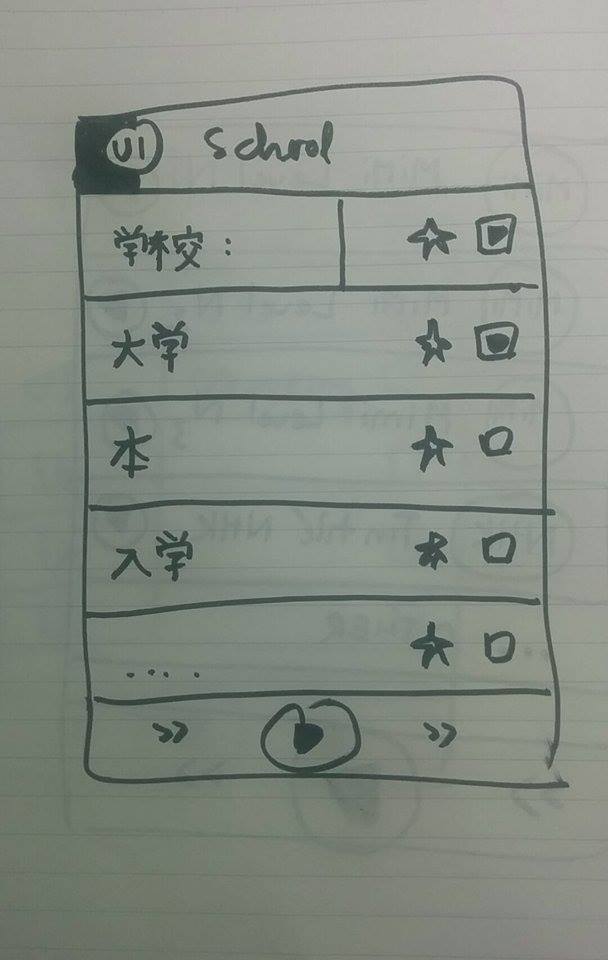 UI School
学校：
大学
本
入学
.....
>> >>